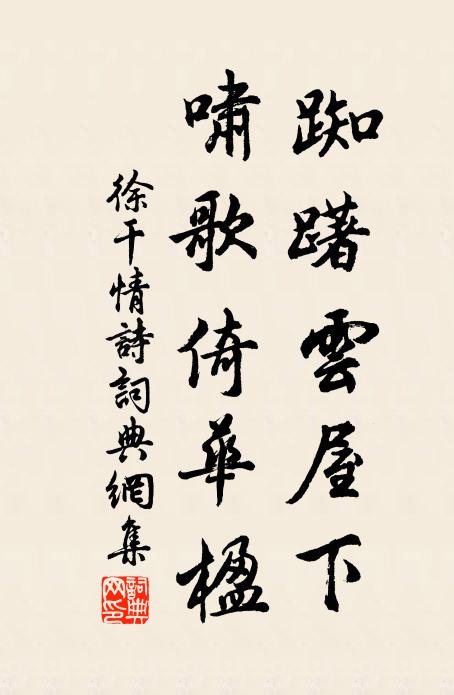 踟躇雲屋下
嘯歌倚華楹
徐干情詩詞典網集
詞典
网印